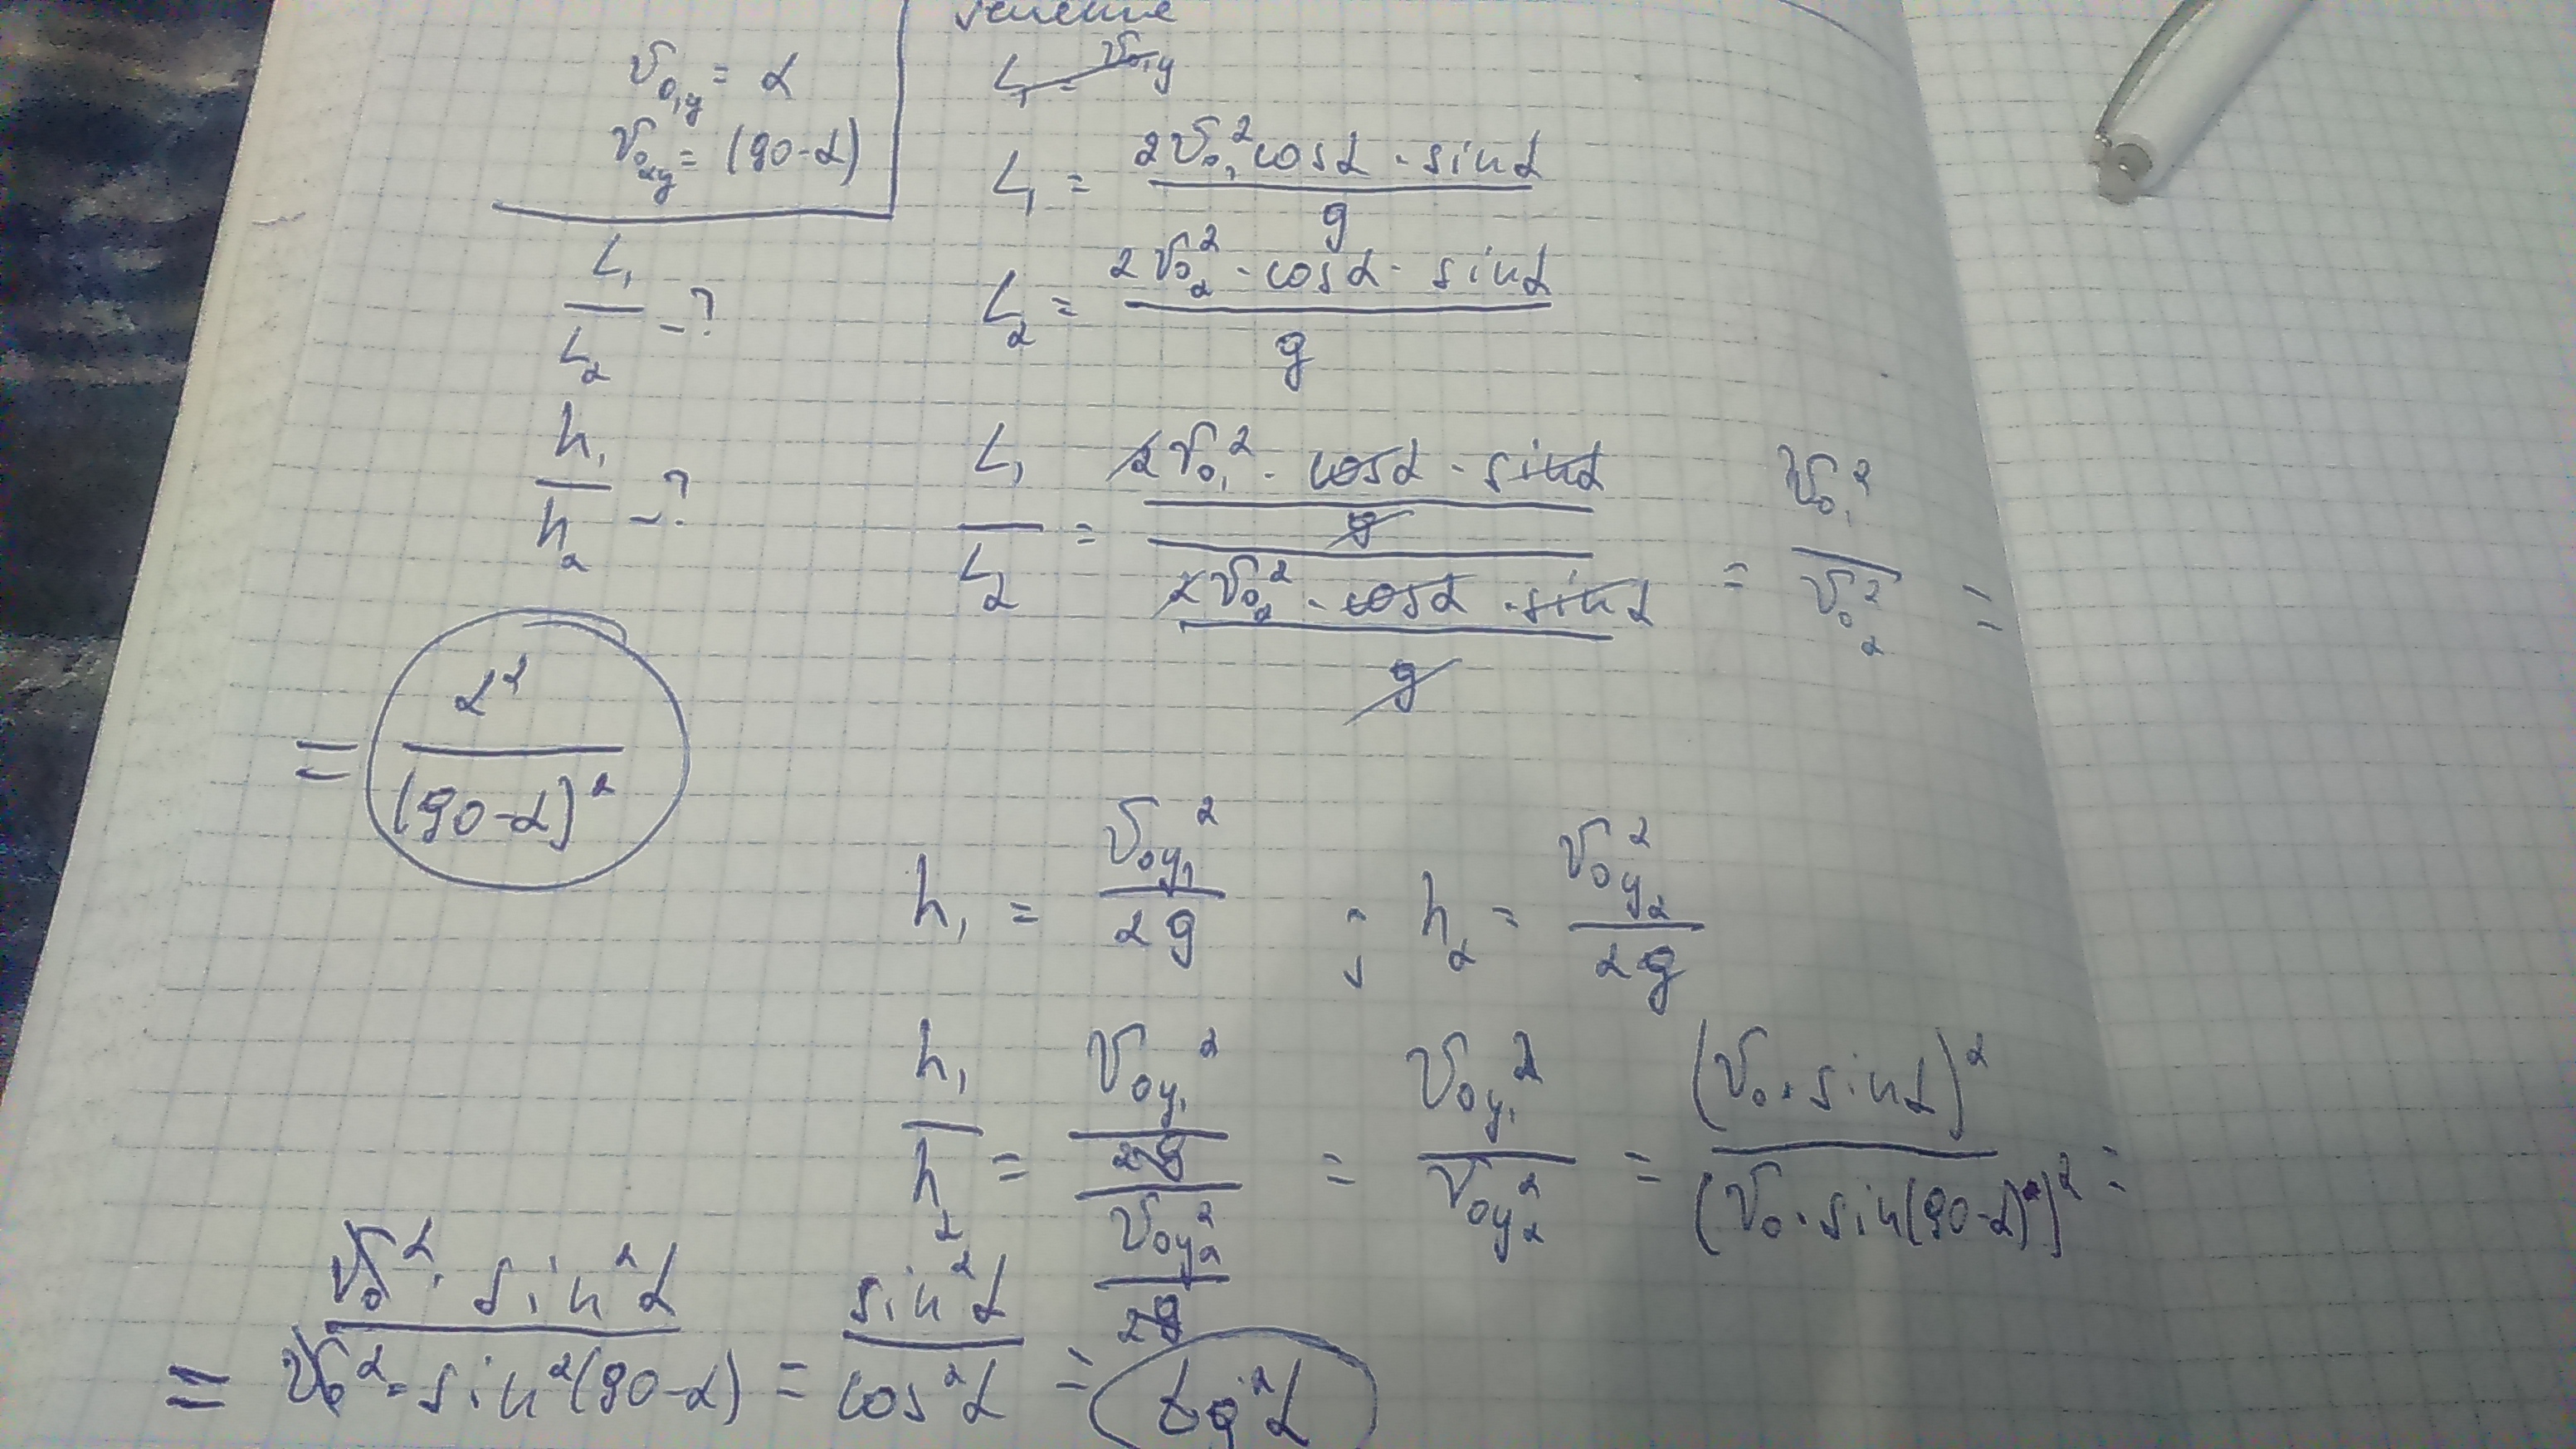 решение
v₀₁y = α
v₀₂y = (90-α)
L₁/L₂ - ?
h₁/h₂ - ?
L₁ = v₀₁y
L₁ = 2v₀₁² cosα · sinα / g
L₂ = 2v₀₂² · cosα · sinα / g
L₁/L₂ = (2v₀₁² · cosα · sinα / g) / (2v₀₂² · cosα · sinα / g) = v₀₁²/v₀₂² =
= α²/(90-α)²
h₁ = v₀y₁²/2g ; h₂ = v₀y₂²/2g
h₁/h₂ = (v₀y₁²/2g) / (v₀y₂²/2g) = v₀y₁²/v₀y₂² = (v₀·sinα)²/(v₀·sin(90-α)²)² =
= v₀²·sin²α / v₀²·sin²(90-α) = sin²α/cos²α = tg²α